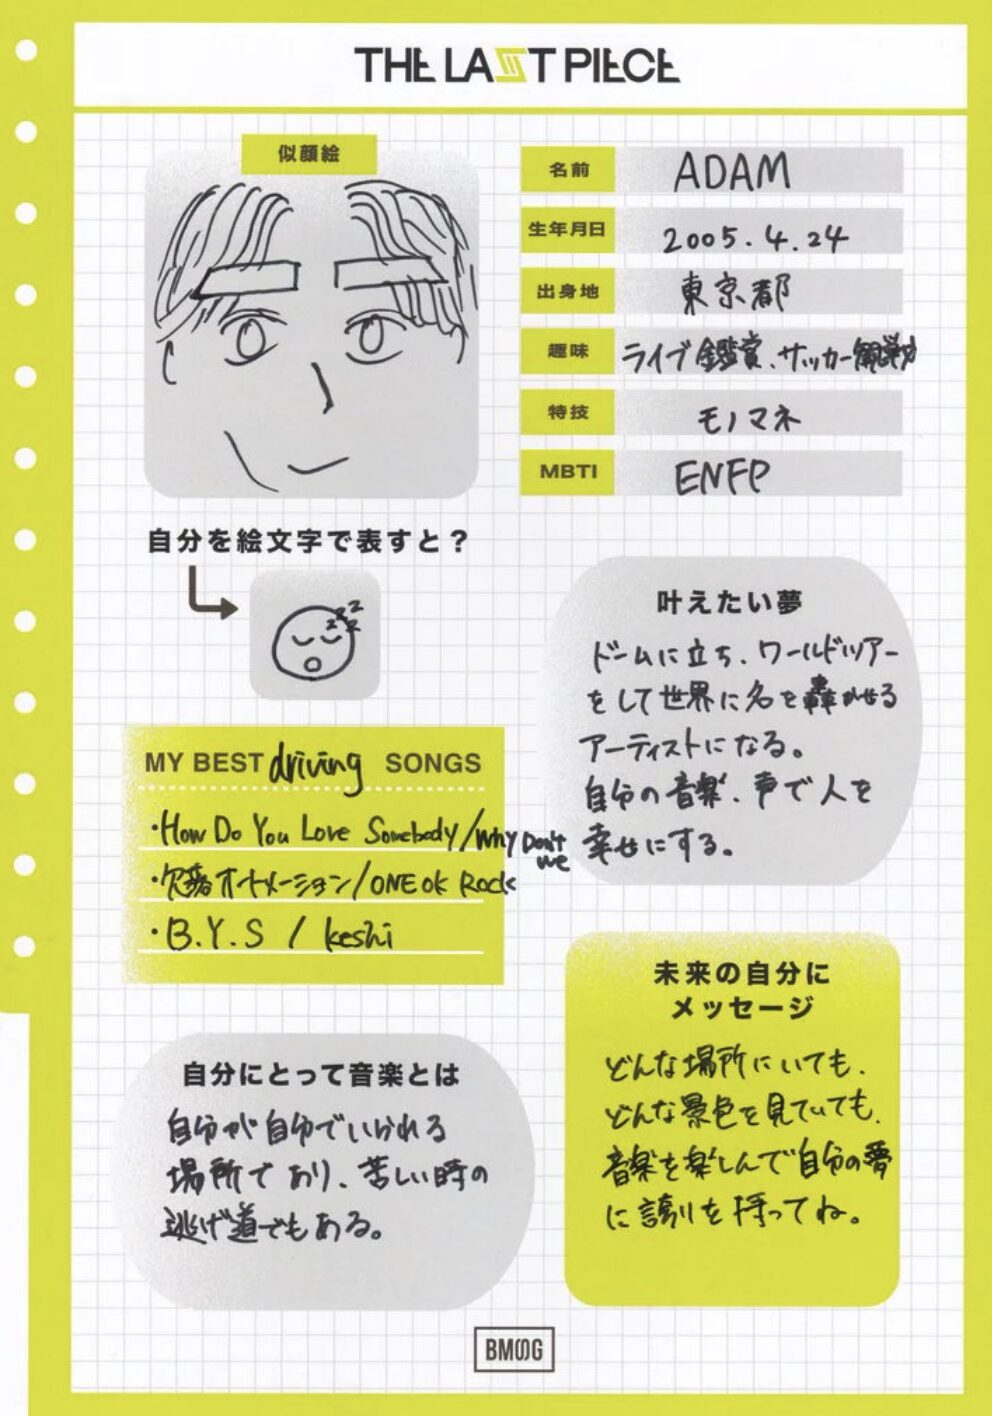 THE LAST PIECE
似顔絵
名前 ADAM
生年月日 2005.4.24
出身地 東京都
趣味 ライブ鑑賞、サッカー観戦
特技 モノマネ
MBTI ENFP
自分を絵文字で表すと？
zzz
叶えたい夢
ドームに立ち、ワールドツアー
をして世界に名を轟かせる
アーティストになる。
自分の音楽、声で人を
幸せにする。
MY BEST driving SONGS
・How Do You Love Somebody/Why Don't
we
・欠落オートメーション/ONE OK ROCK
・B.Y.S / keshi
未来の自分に
メッセージ
どんな場所にいても、
どんな景色を見ていても、
音楽を楽しんで自分の夢
に誇りを持ってね。
自分にとって音楽とは
自分が自分でいられる
場所であり、苦しい時の
逃げ道でもある。
BMSG